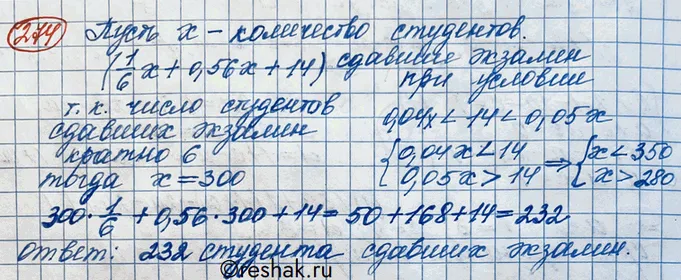 274 Пусть x - количество студентов.
(1/6 x + 0,56x + 14) сдавшие экзамен
при условии
т.к. число студентов
сдавших экзамин
кратно 6
тогда x = 300
0,04x < 14 < 0,05x
{0,04x < 14 ⇒ {x < 350
{0,05x > 14 {x > 280
300 · 1/6 + 0,56 · 300 + 14 = 50 + 168 + 14 = 232
ответ: 232 студента сдавших экзамин.
©reshak.ru